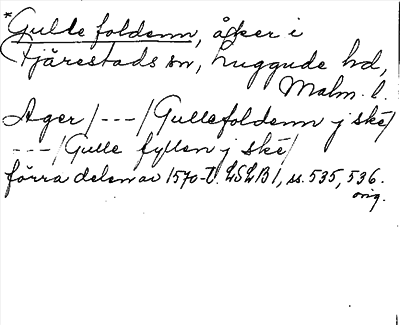 *Gulle foldenn, åker i
Tjärestads sn, Luggude hd,
Malm. l.
Ager / --- / Gullefoldenn j ske /
--- / Gulle fyllen j ske /
förra delen av 1570-t. LSLB 1, ss. 535, 536.
orig.